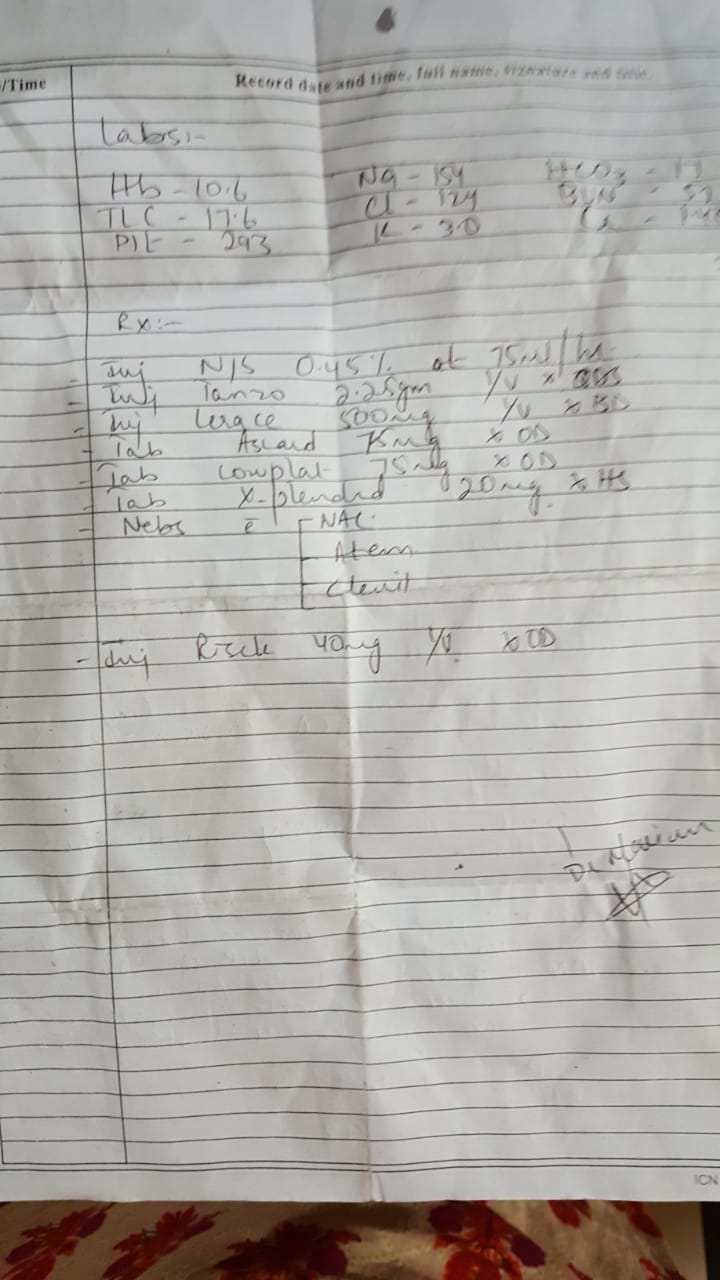 /Time Record date and time, full name, signature and title.
Labs:-
Hb - 10.6 Na - 154 HCO3 -
TLC - 17.6 Cl - 124 BUN -
Plt - 293 K - 3.0 Cr -
Rx:-
- Inj N/S 0.45% at 75ml/hr
- Inj Tanzo 2.25gm I/V x
- Inj Lerace 500mg I/V x BD
- Tab Ascard 75mg x OD
- Tab Lowplat 75mg x OD
- Tab X-plended 20mg x HS
- Nebs c̄ NAC
Atem
Clenil
- Inj Risek 40mg I/V x OD
Dr
ICN